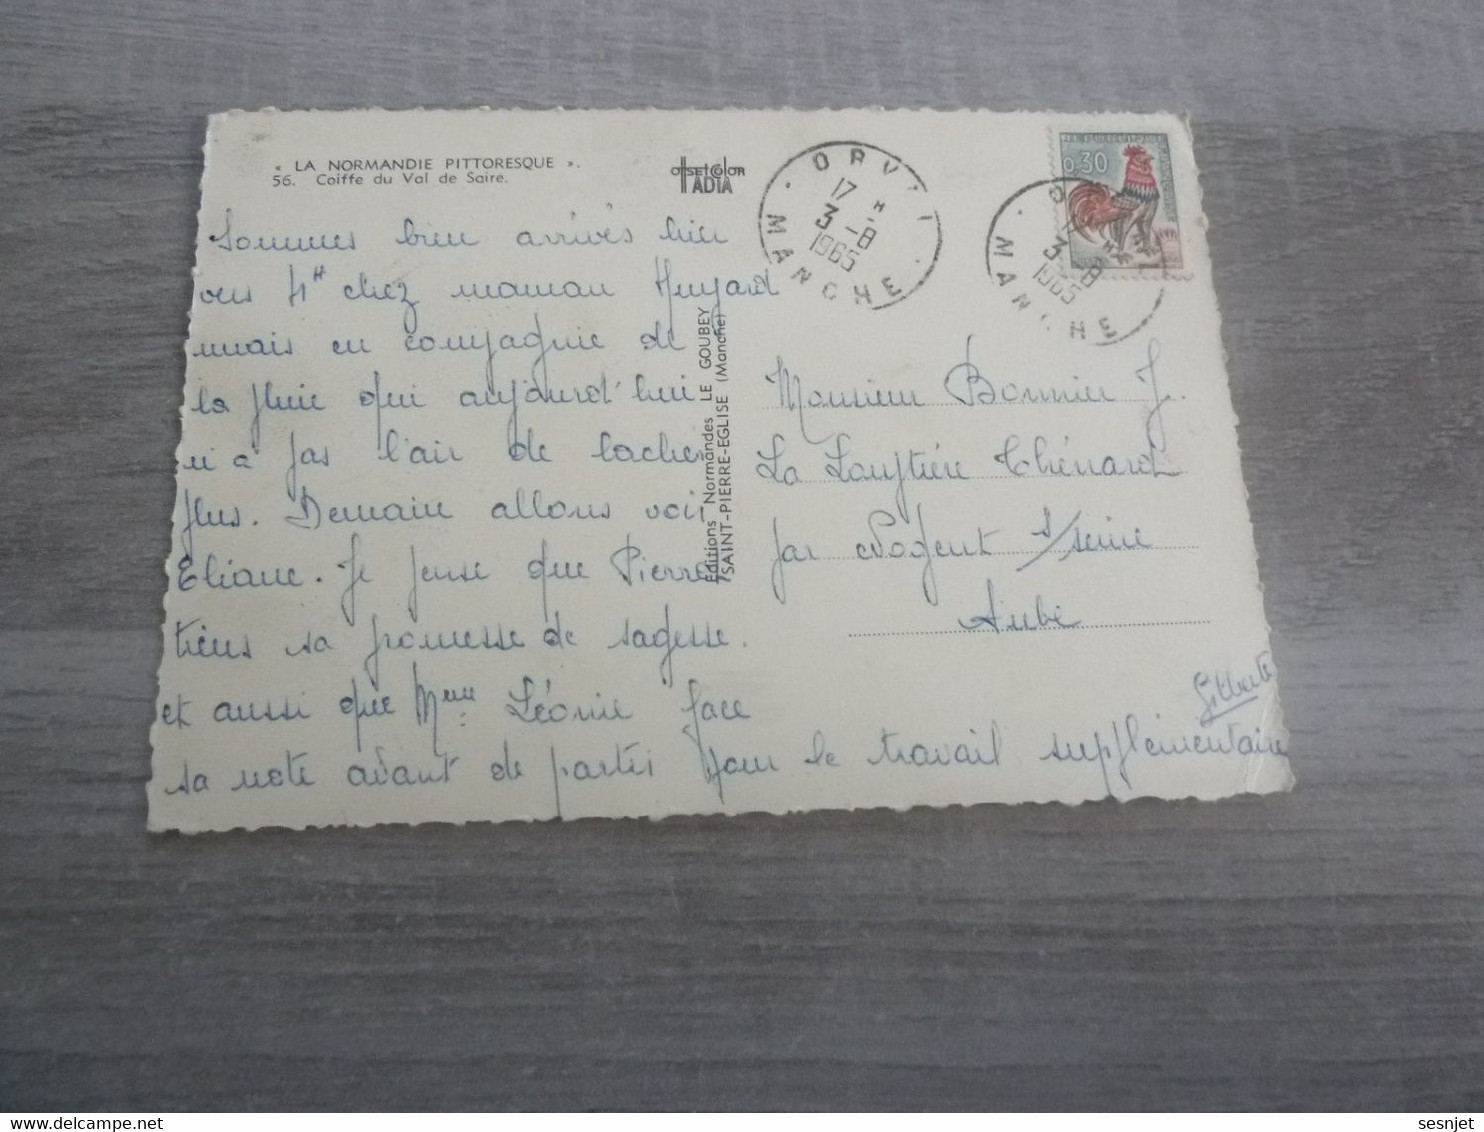 « LA NORMANDIE PITTORESQUE ».
56. Coiffe du Val de Saire.
OFFSETCOLOR
IADIA
ORV
17 H
3-8
1965
MANCHE
0,30
17 H
3-8
1965
MANCHE
Sommes bien arrivés hier
vers 4H chez maman
mais en compagnie de
la pluie qui aujourd'hui
n'a pas l'air de lacher
plus. Demain allons voir
Eliane. Je pense que Pierre
tiens sa promesse de sagesse.
et aussi que Mme Léonie face
sa note avant de partir pour le travail supplémentaire
Gilberte
Editions Normandes LE GOUBEY
SAINT-PIERRE-EGLISE (Manche)
Monsieur Bonnier J.
La Thénard
par Nogent s/seine
Aube
sesnjet